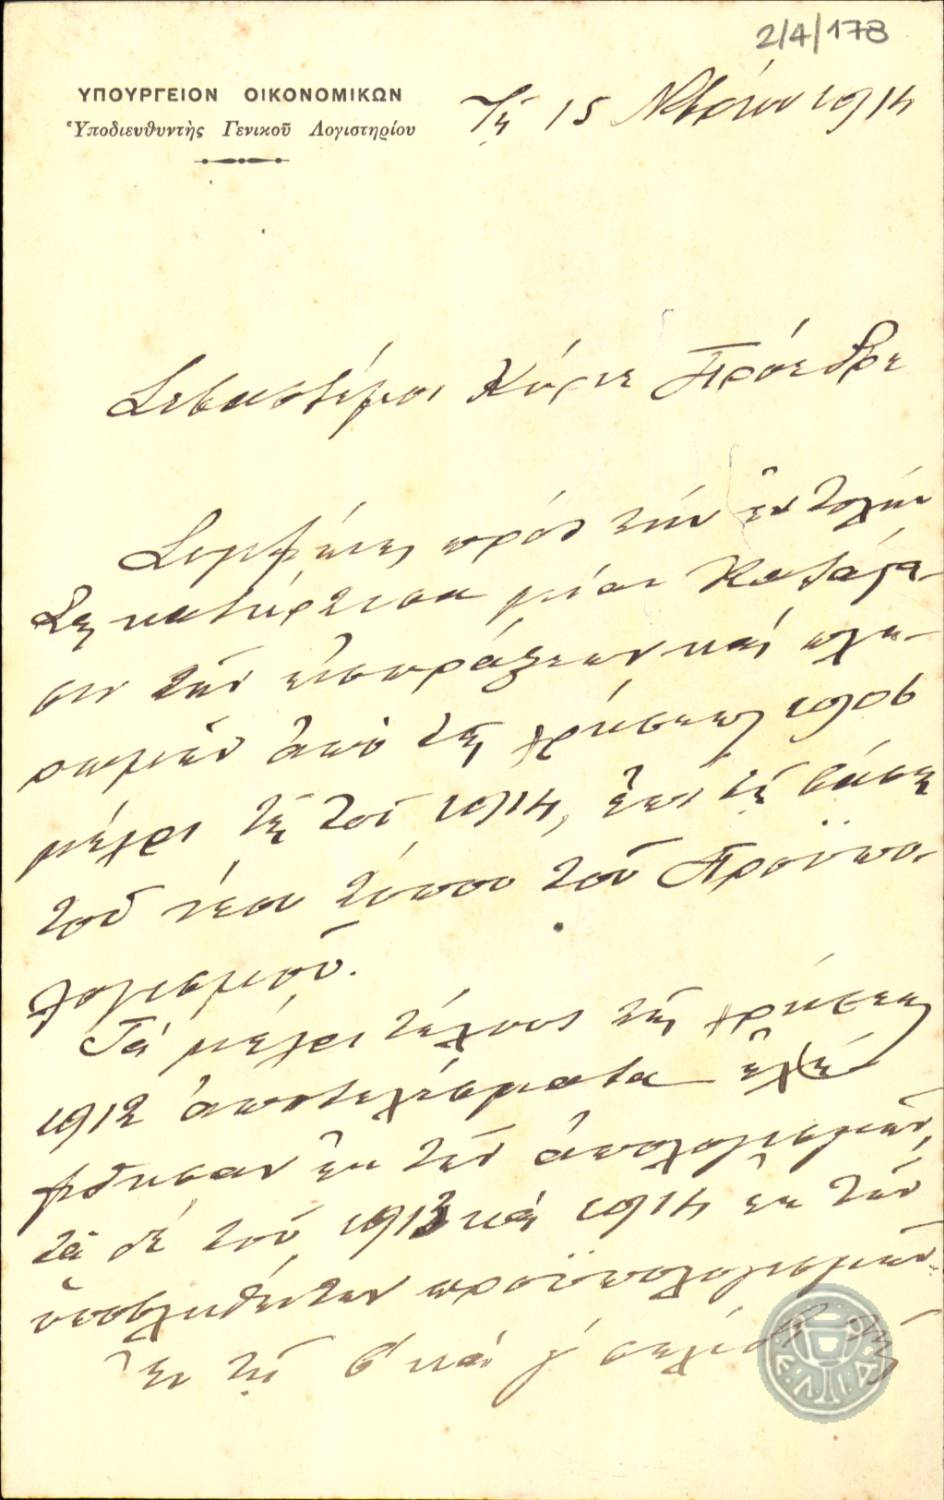 2/4/178
ΥΠΟΥΡΓΕΙΟΝ ΟΙΚΟΝΟΜΙΚΩΝ
Ὑποδιευθυντὴς Γενικοῦ Λογιστηρίου
Τῇ 15 Νοεμβρίου 1914
Σεβαστέ μοι Κύριε Πρόεδρε
Συμφώνως πρὸς τὴν ἐντολήν
Σας κατήρτισα μίαν Κατάστα-
σιν τῶν εἰσπράξεων καὶ πλη-
ρωμῶν ἀπὸ τῆς χρήσεως 1906
μέχρι τῆς τοῦ 1914, ἐπὶ τῇ βάσει
τοῦ νέου τύπου τοῦ Προϋπο-
λογισμοῦ.
Τὰ μέχρι τέλους τῆς χρήσεως
1912 ἀποτελέσματα ἐλή-
φθησαν ἐκ τῶν ἀπολογισμῶν,
τὰ δὲ τοῦ 1913 καὶ 1914 ἐκ τῶν
ὑποβληθέντων προϋπολογισμῶν.
Ἐν τῇ β' καὶ γ' σελίδι τῆς